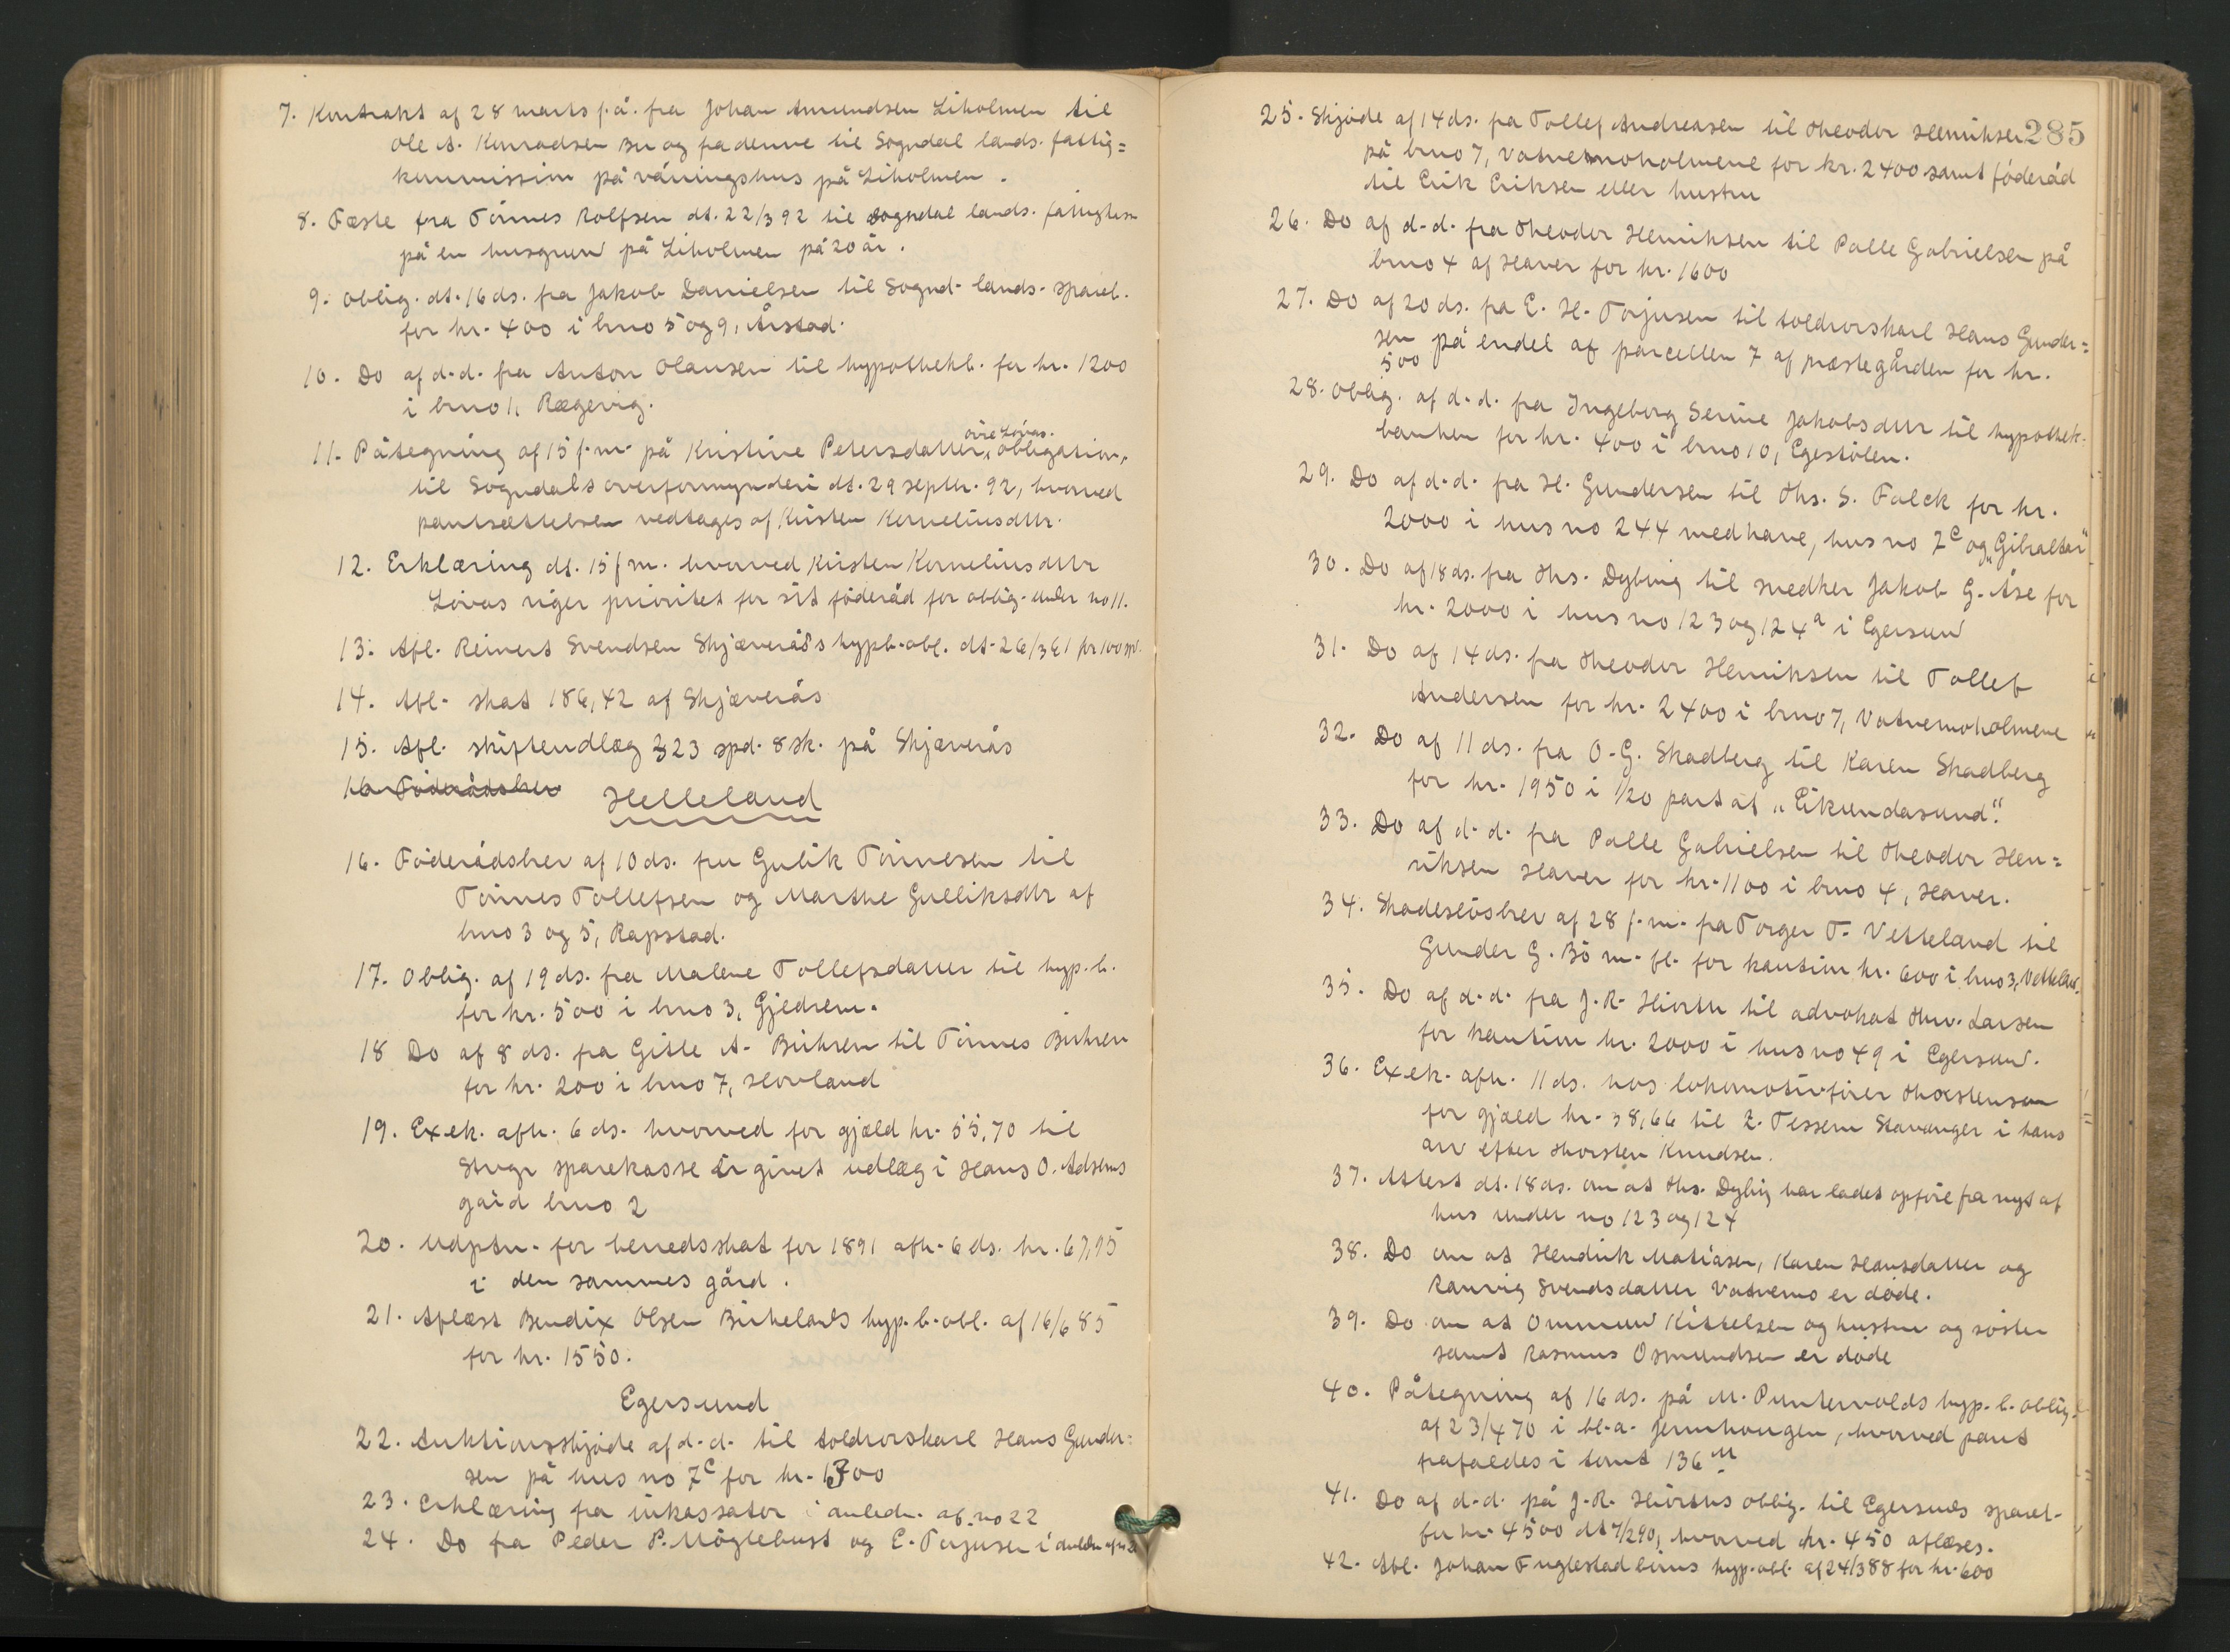 7. Kontrakt af 28 marts s. å. fra Johan Amundsen Liholmen til
Ole A. Konradsen Bu og fra denne til Sogndal lands. fattig=
kommission på våningshus på Liholmen.
8. Fæste fra Tönnes Rolfsen dt. 22/3 92 til Sogndal lands.
på en husgrund på Liholmen på 20 år.
9. Oblig. dt. 16 ds. fra Jakob Danielsen til Sognd. lands. spareb.
for kr. 400 i brno 5 og 9, Årstad.
10. Do af d. d. fra Anton Olausen til hypothekb. for kr. 1200
i brno 1, Rægevig.
övre Lövås.
11. Påtegning af 15 f. m. på Kristine Petersdatters obligation,
til Sogndals overformynderi dt. 29 septbr. 92, hvorved
pantsættelsen vedtages af Kirsten Korneliusdtr.
12. Erklæring dt. 15 f. m. hvorved Kirsten Korneliusdtr
Lövås viger prioritet for sit föderåd for oblig. under no 11.
13. Afl. Reinert Svendsen Skjæverås's hypb. obl. dt. 26/3 61 for 100 spd.
14. Afl. skat 186,42 af Skjæverås
15. Afl. skifteudlæg 323 spd. 8 sk. på Skjæverås
16 Föderådsbrev
Helleland
16. Föderådsbrev af 10 ds. fra Gulik Tönnesen til
Tönnes Tollefsen og Marthe Gulliksdtr af
brno 3 og 5, Rapstad.
17. Oblig. af 19 ds. fra Malene Tollefsdatter til hyp. b.
for kr. 500 i brno 3, Gjedrem.
18 Do af 8 ds. fra Gitle A. Birkren til Tönnes Birkren
for kr. 200 i brno 7, Hovland
19. Exek. afh. 6 ds. hvorved for gjæld kr. 55,70 til
Stvgr sparekasse er givet udlæg i Hans O. Adsens
gård brno 2
20. Udptn. for herredsskat for 1891 afh. 6 ds. kr. 67,95
i den sammes gård.
21. Aflæst Bendix Olsen Birkelands hyp. b. obl. af 16/6 85
for kr. 1550.
Egersund
22. Auktionsskjöde af d. d. til toldrorskarl Hans Gunder=
sen på hus no 7c for kr. 1300
23. Erklæring fra inkassator i anledn. af no 22
24. Do fra Peder P. Möglebust og E. Torjusen i anledn af no 22
285
25. Skjöde af 14 ds. fra Tollef Andreasen til Theodor Henriksen
på brno 7, Vatnemoholmene for kr. 2400 samt föderåd
til Erik Eriksen eller hustru
26. Do af d. d. fra Theodor Henriksen til Palle Gabrielsen på
brno 4 af Haver for kr. 1600
27. Do af 20 ds. fra E. H. Torjusen til toldrorskarl Hans Gunder=
sen på endel af parcellen 7 af præstegården for kr.
500
28. Oblig. af d. d. fra Ingeborg Serine Jakobsdtr til hypothek-
banken for kr. 400 i brno 10, Egestölen.
29. Do af d. d. fra H. Gundersen til Ths. S. Falck for kr.
2000 i hus no 244 med have, hus no 7c og "Gibraltar"
30. Do af 18 ds. fra Ths. Dybing til snedker Jakob G. Åse for
kr. 2000 i hus no 123 og 124a i Egersund
31. Do af 14 ds. fra Theodor Henriksen til Tollef
Andersen for kr. 2400 i brno 7, Vatnemoholmene
32. Do af 11 ds. fra O. G. Skadberg til Karen Skadberg
for kr. 1950 i 1/20 part af "Eikundasund".
33. Do af d. d. fra Palle Gabrielsen til Theodor Hen=
riksen Haver for kr. 1100 i brno 4, Haver.
34. Skadeslösbrev af 28 f. m. fra Torger T. Vetteland til
Gunder G. Bö m. fl. for kaution kr. 600 i brno 3, Vetteland.
35. Do af d. d. fra J. R. Hiorth til advokat Thv. Larsen
for kaution kr. 2000 i hus no 49 i Egersund.
36. Exek. afh. 11 ds. hos lokomotivförer Thorstensen
for gjæld kr. 38,66 til Z. Tessem Stavanger i hans
arv efter Thorsten Knudsen.
37. Attest dt. 18 ds. om at Ths. Dybing har ladet opföre fra nyt af
hus under no 123 og 124
38. Do om at Hendrik Matiasen, Karen Hansdatter og
Ranvig Svendsdatter Vatnemo er döde.
39. Do om at Ommund Kittelsen og hustru og söster
samt Rasmus Osmundsen er döde
40. Påtegning af 16 ds. på M. Puntervolds hyp. b. oblig.
af 23/4 70 i bl. a. Jernhaugen, hvorved pant
frafaldes i tomt 136 M
41. Do af d. d. på J. R. Hiorths oblig. til Egersunds spareb.
for kr. 4500 dt 7/2 90, hvorved kr. 450 aflæses.
42. Afl. Johan Fuglestad hyp. obl. af 24/3 88 for kr. 600